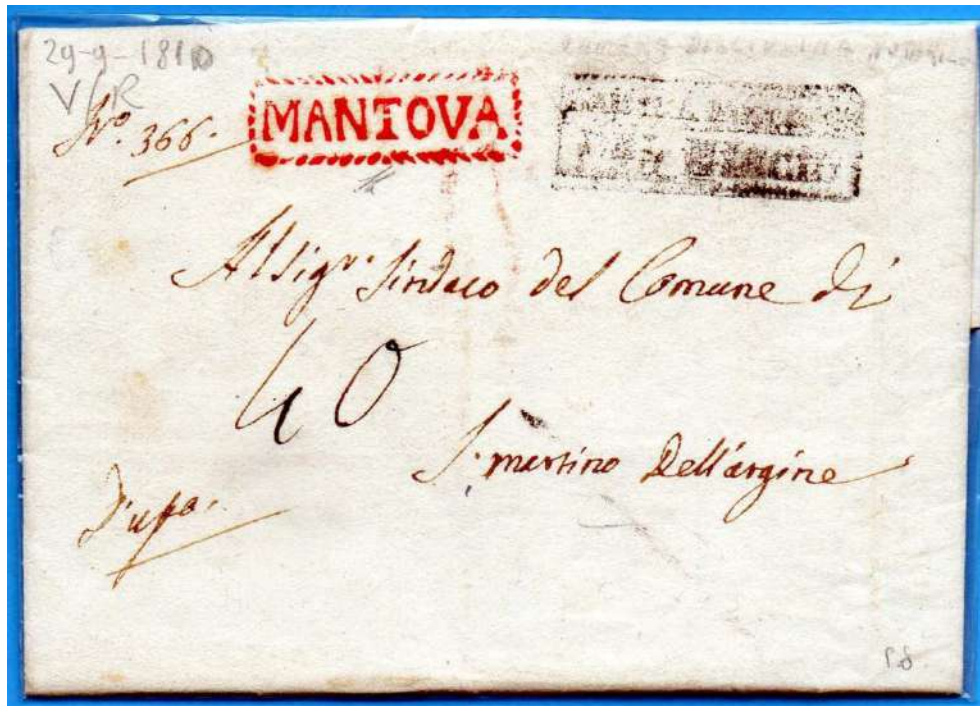 29-9-1810
V/R
Nro. 366.
MANTOVA
Al Sigr. Sindaco del Comune di
40
S. Martino Dell'argine
D'uffo.